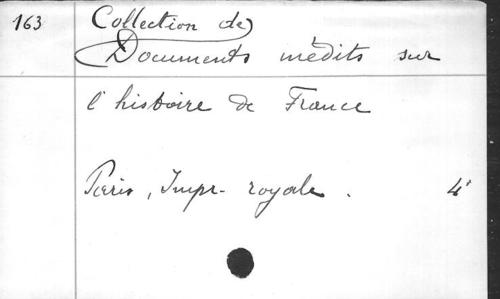 163 Collection de
Documents inédits sur
l'histoire de France
Paris, Impr. royale. 4°